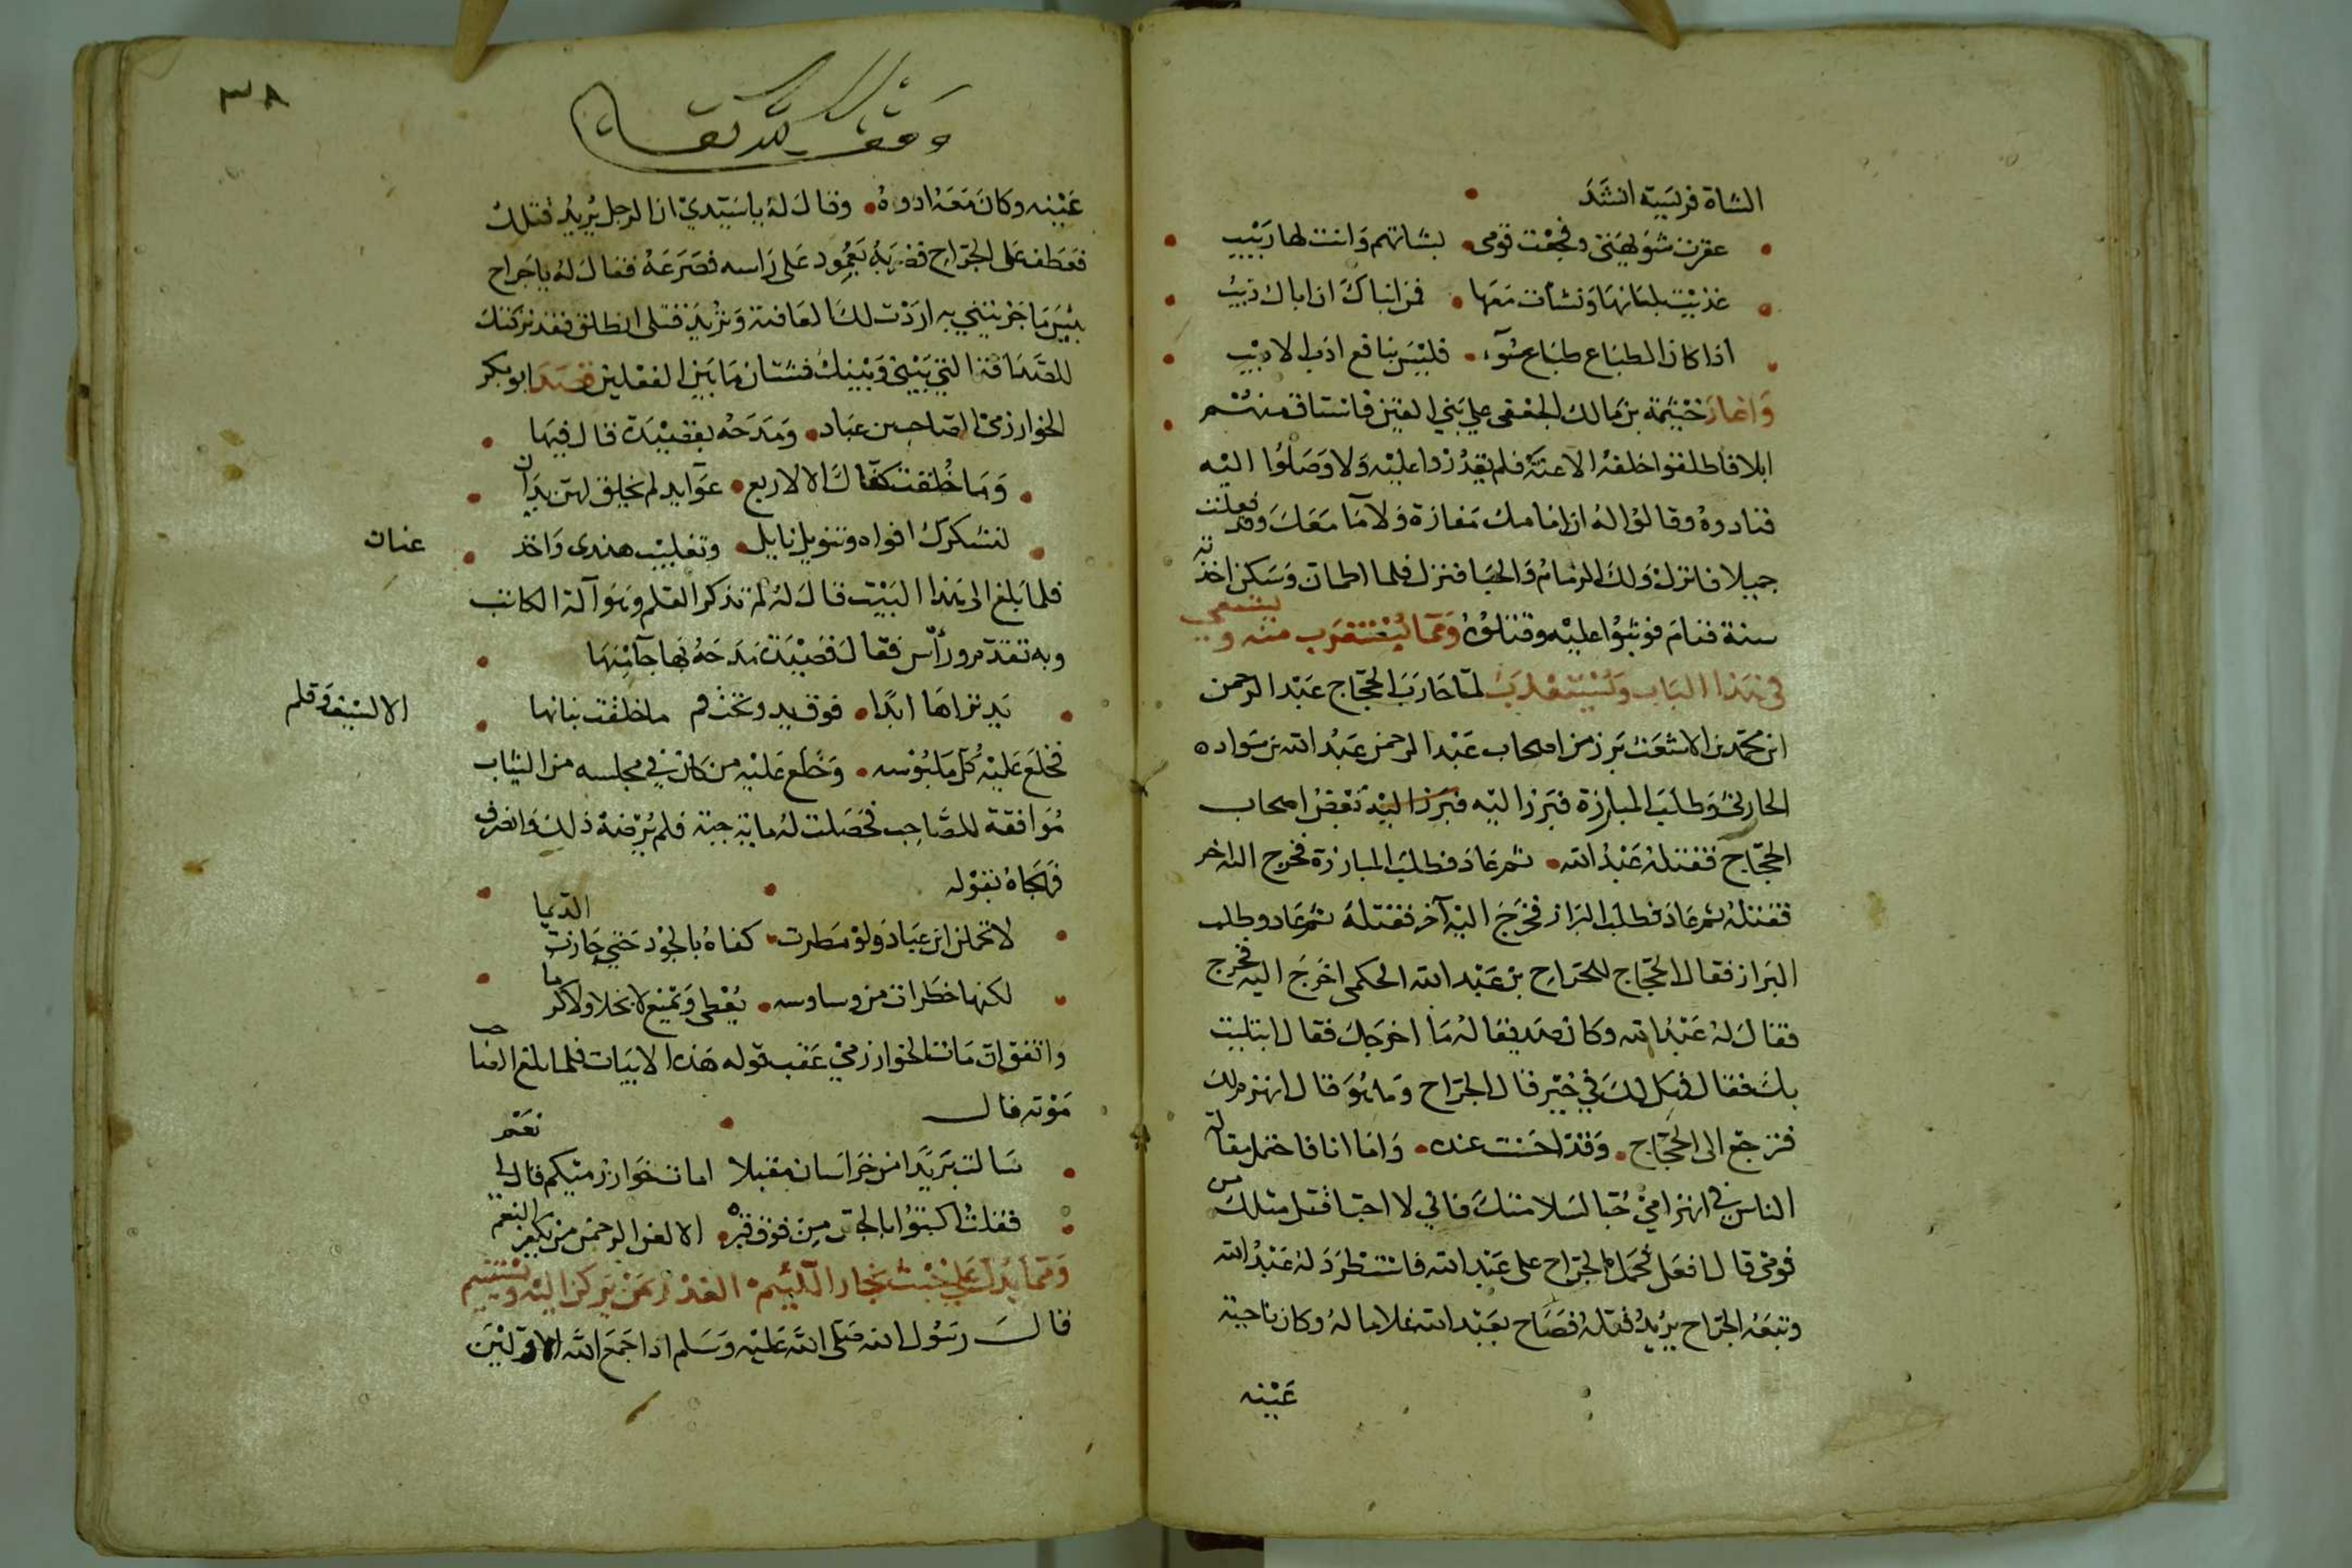 الشاة فريسة انشد
عقرت شويهتى وفجعت قومى بشاتهم وانت لها ربيب
غذيت بلبانها ونشأت معها فمن انباك ان اباك ذيب
اذا كان الطباع طباع سوء فليس بنافع ادب الاديب
واغار خيثمة بن مالك الجعفى على بني القين فاستاق منهم
ابلا فاطلقوا خلفه الاعنة فلم يقدروا عليه ولا وصلوا اليه
فنادوه وقالوا له ان امامك مفازة ولا ما معك وقد فعلت
جميلا فانزل ولك الذمام والحبا فنزل فلما اطمان وسكن اخذته
سنة فنام فوثبوا عليه وقتلوه ومما يستغرب منه ويستعمى
في هذا الباب ويستعذب لما حارب الحجاج عبد الرحمن
ابن محمد بن الاشعث برز من اصحاب عبد الرحمن عبد الله بن سواده
الحارثى وطلب المبارزة فبرز اليه فبرز اليه بعض اصحاب
الحجاج فقتله عبد الله ثم عاد فطلب المبارزة فخرج اليه اخر
فقتله ثم عاد فطلب البراز فخرج اليه آخر فقتله ثم عاد وطلب
البراز فقال الحجاج للجراح بن عبد الله الحكمى اخرج اليه فخرج
فقال له عبد الله وكان صديقا له ما اخرجك فقال ابتليت
بك فقال فهل لك في خير قال الجراح وما هو قال انهزم لك
فترجع الى الحجاج وقد احسنت عنده واما انا فاحتمل مقالة
الناس في انهزامي حبا لسلامتك فاني لا احب قتل مثلك من
قومى قال افعل فحمل الجراح على عبد الله فاستطرد له عبد الله
وتبعه الجراح يريد قتله فصاح بعبد الله غلاما له وكان ناحية
عينه
٣٨
وقف لله تعالى
عينه وكان معه اداوة وقال له يا سيدي ان الرجل يريد قتلك
فعطف على الجراح فضربه بعمود على راسه فصرعه فقال له يا جراح
بئس ما جزيتني به اردت لك العافية وتريد قتلى انطلق فقد تركتك
للصداقة التي بيني وبينك فشتان ما بين الفعلين قصد ابو بكر
الخوارزمى الصاحب بن عباد ومدحه بقصيدة قال فيها
وما خلقت كفاك الا لاربع عوايد لم يخلق لهن يدان
لتشكرك افواه وتنويل نايل وتقليب هندى واخذ عنان
فلما بلغ الى هذا البيت قال له لم تذكر القلم وهو آلة الكاتب
وبه تقدم وراس فقال قصيدة مدحه بها جآ منها
يد تراها ابدا فوق يد وتحت فم ما خلقت بنانها الا لسيف وقلم
فخلع عليه كل ملبوسه وخلع عليه من كان في مجلسه من الثياب
موافقة للصاحب فحصلت له ماية جبة فلم يرضه ذلك وانصرف
فهجاه بقوله
لا تحمدن ابن عباد ولو مطرت كفاه بالجود حتى جازت الديما
لكنها خطرات من وساوسه يعطى ويمنع لا بخلا ولا كرما
واتفق ان مات الخوارزمي عقب قوله هذه الابيات فلما بلغ الصاحب
موته قال
سالت بريدا من خراسان مقبلا امات خوارزميكم قال لى نعم
فقلت اكتبوا بالجص من فوق قبره الا لعن الرحمن من يكفر النعم
ومما يدل على خبث نجار اللئيم الغدر بمن يركن اليه ويستنيم
قال رسول الله صلى الله عليه وسلم اذا جمع الله الاولين